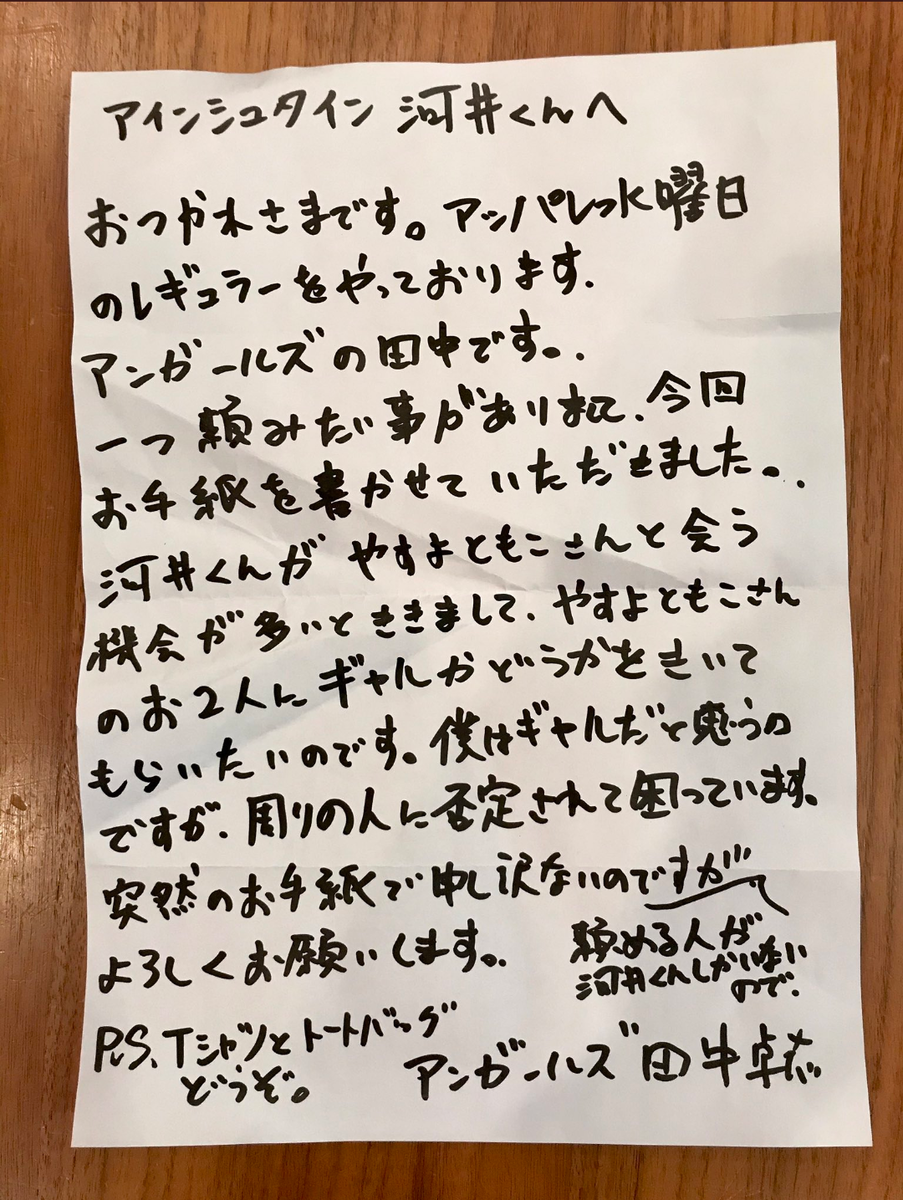 アインシュタイン 河井くんへ
おつかれさまです。アッパレっ水曜日
のレギュラーをやっております.
アンガールズの田中です。.
一つ頼みたい事がありまして、今回
お手紙を書かせていただきました。.
河井くんがやすよともこさんと会う
機会が多いとききまして、やすよともこさん
のお2人にギャルかどうかをきいて
もらいたいのです。僕はギャルだと思うの
ですが、周りの人に否定されて困っています。
突然のお手紙で申し訳ないのですが
頼める人が
河井くんしかいない
ので、
よろしくお願いします。.
P.S、Tシャツとトートバッグ
どうぞ。
アンガールズ 田中卓志